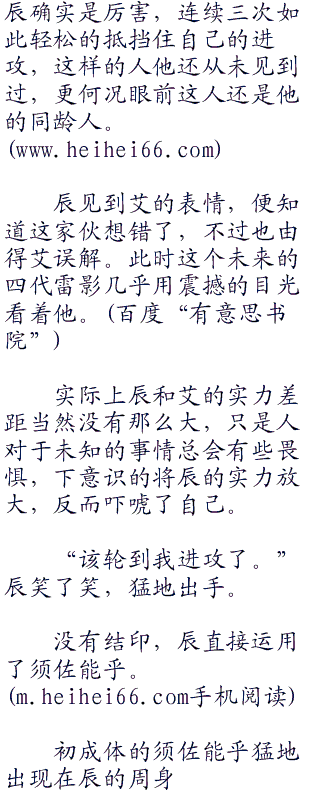 辰确实是厉害，连续三次如
此轻松的抵挡住自己的进
攻，这样的人他还从未见到
过，更何况眼前这人还是他
的同龄人。
(www.heihei66.com)
辰见到艾的表情，便知
道这家伙想错了，不过也由
得艾误解。此时这个未来的
四代雷影几乎用震撼的目光
看着他。(百度“有意思书
院”)
实际上辰和艾的实力差
距当然没有那么大，只是人
对于未知的事情总会有些畏
惧，下意识的将辰的实力放
大，反而吓唬了自己。
“该轮到我进攻了。”
辰笑了笑，猛地出手。
没有结印，辰直接运用
了须佐能乎。
(m.heihei66.com手机阅读)
初成体的须佐能乎猛地
出现在辰的周身